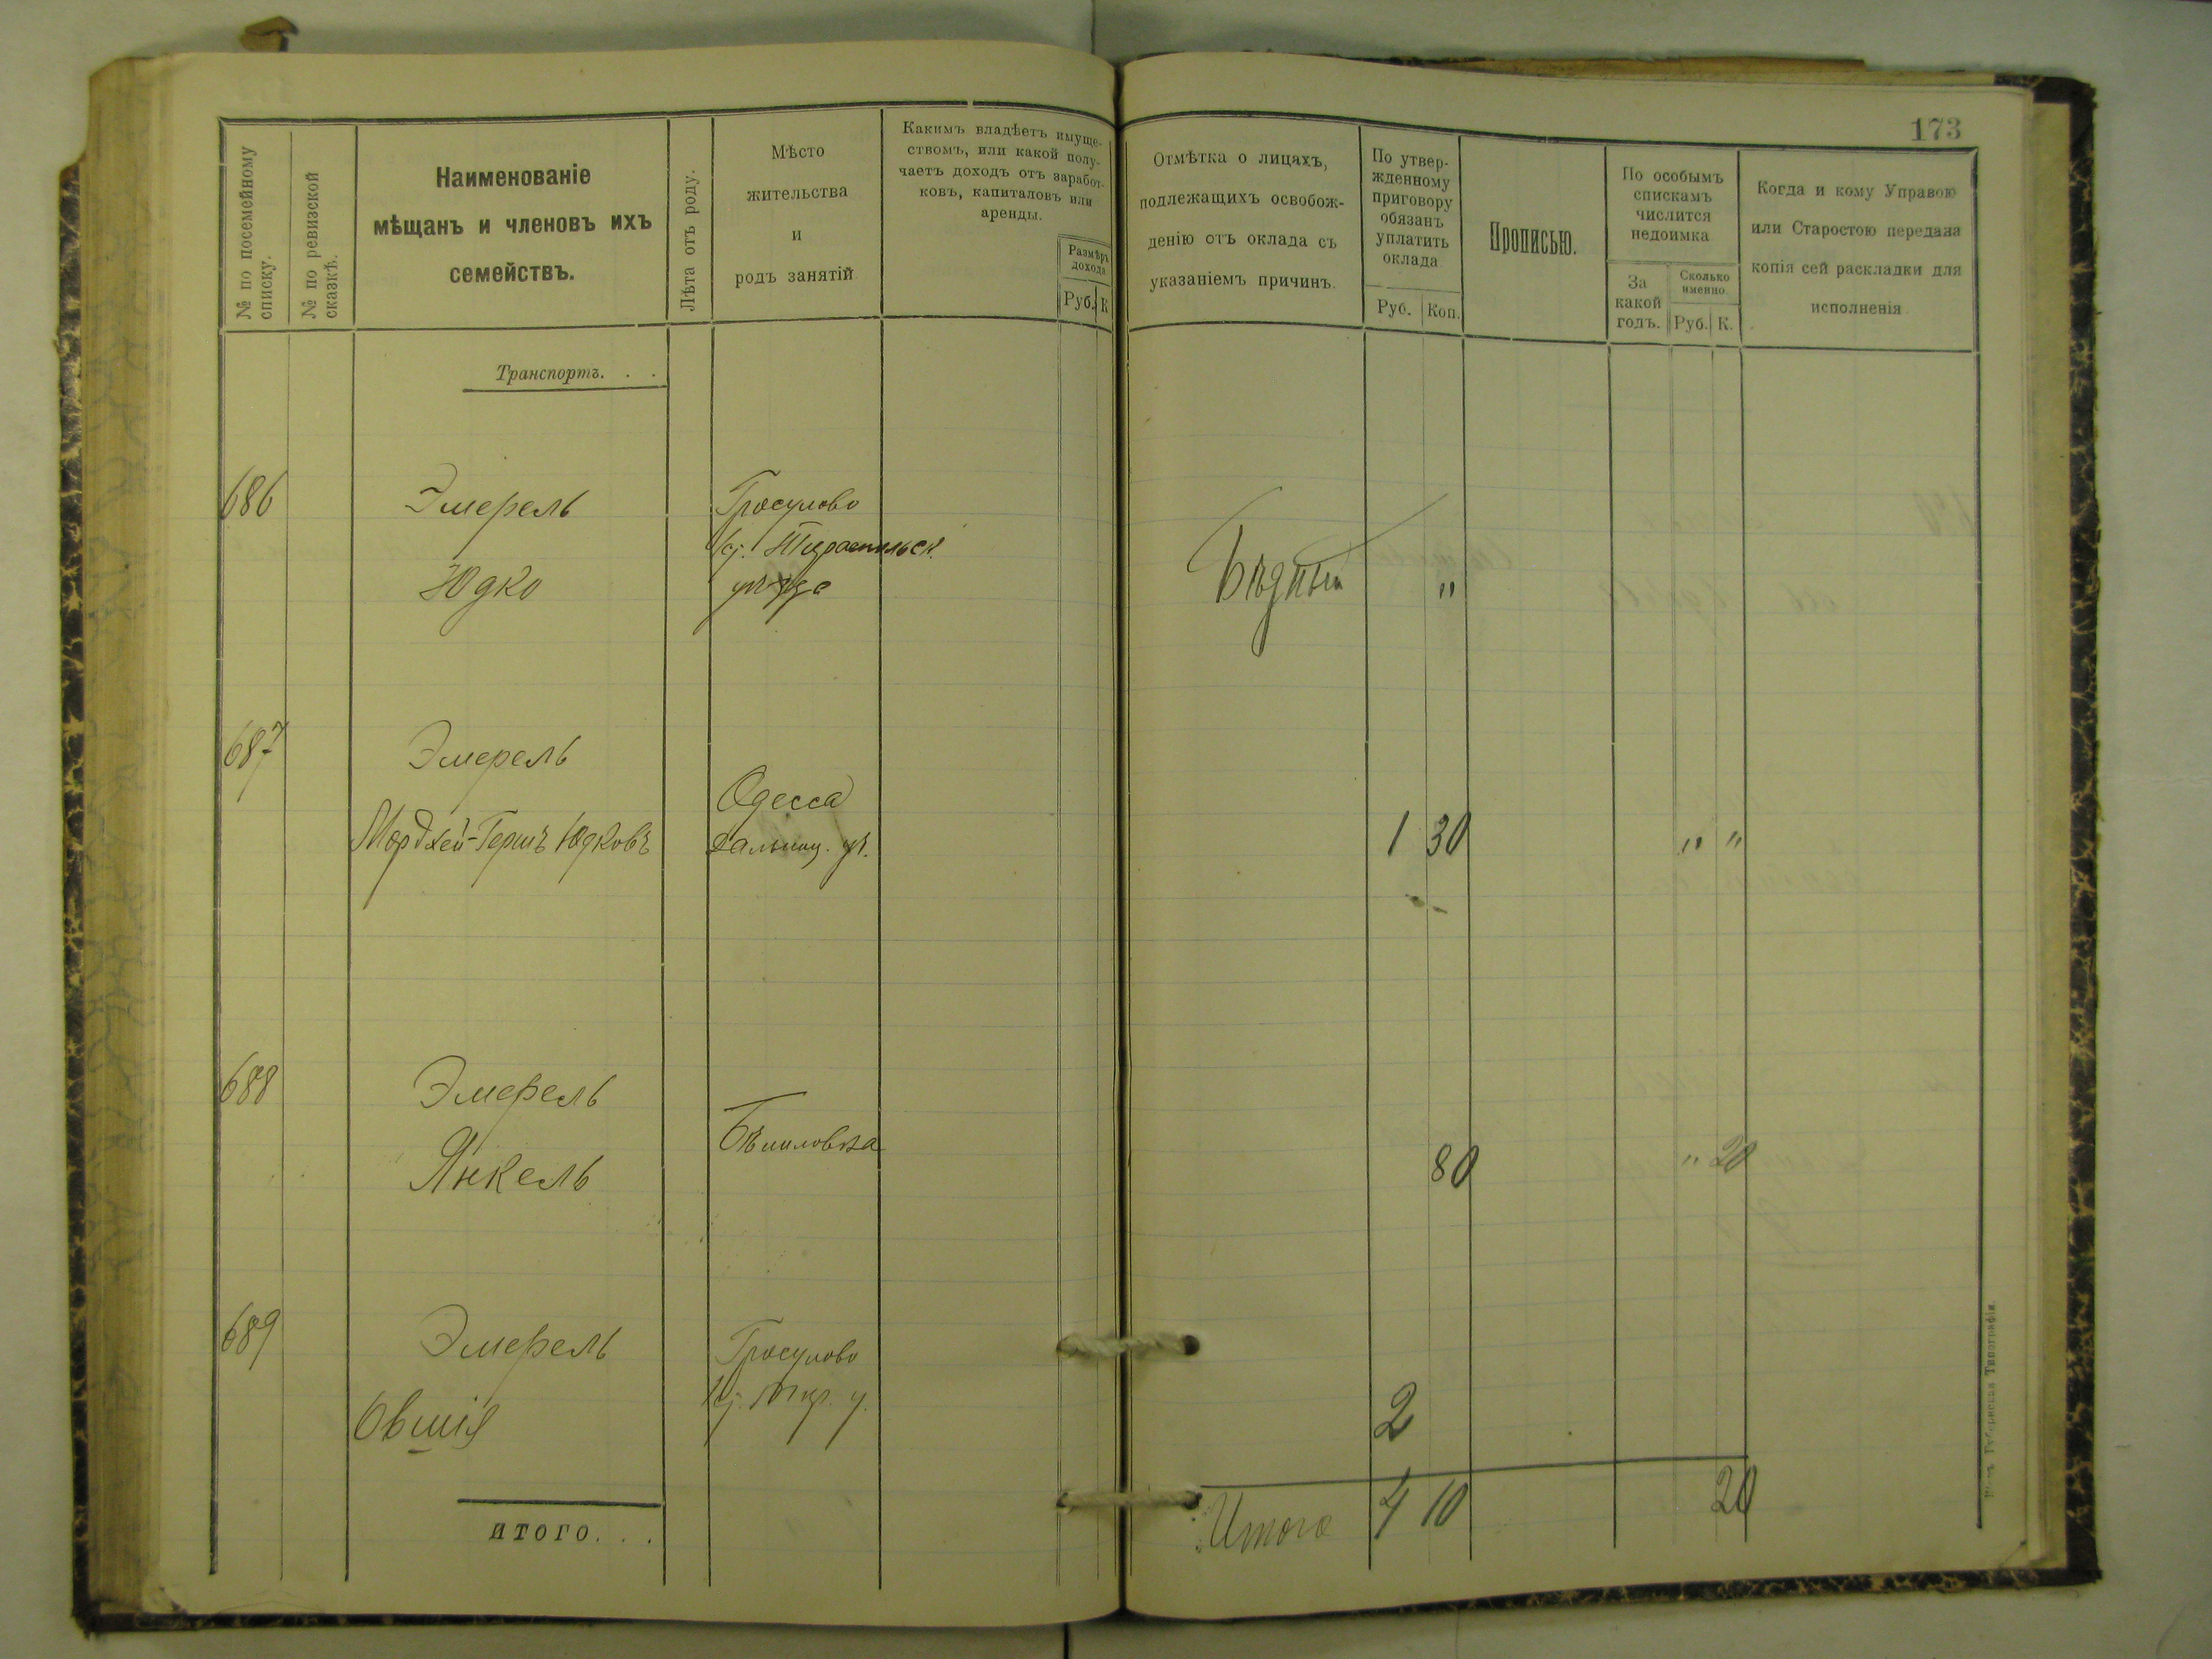 173
№ по посемейному списку.
№ по ревизской сказкѣ.
Наименованіе
мѣщанъ и членовъ ихъ
семействъ.
Лѣта отъ роду.
Мѣсто
жительства
и
родъ занятій
Какимъ владѣетъ имуще-
ствомъ, или какой полу-
чаетъ доходъ отъ заработ-
ковъ, капиталовъ или
аренды.
Размѣръ
дохода
Руб. К
Отмѣтка о лицахъ,
подлежащихъ освобож-
денію отъ оклада съ
указаніемъ причинъ.
По утвер-
жденному
приговору
обязанъ
уплатить
оклада
Руб. Коп.
Прописью.
По особымъ
спискамъ
числится
недоимка
За
какой
годъ.
Сколько
именно.
Руб. К.
Когда и кому Управою
или Старостою передана
копія сей раскладки для
исполненія
Транспортъ. . .
686 Эмерель Гросулово
Тираспольск.
Юдко уѣзда Бѣдный "
687 Эмерель
Одесса
Мордхей-Гершъ Юдковъ 1 30 " "
688 Эмерель
Янкель 80 " 20
689 Эмерель Гросулово
Овшія Тир. у. 2
ИТОГО. . .
Итого 4 10 20
Губернская Типографія.